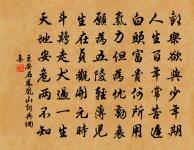 歡樂欲與少年期
人生百年常苦遲
白頭富貴何所用
氣力但為憂勤衰
願為五陵輕薄兒
生在貞觀開元時
斗雞走犬過一生
天地安危兩不知
王安石鳳凰山詞典網
集